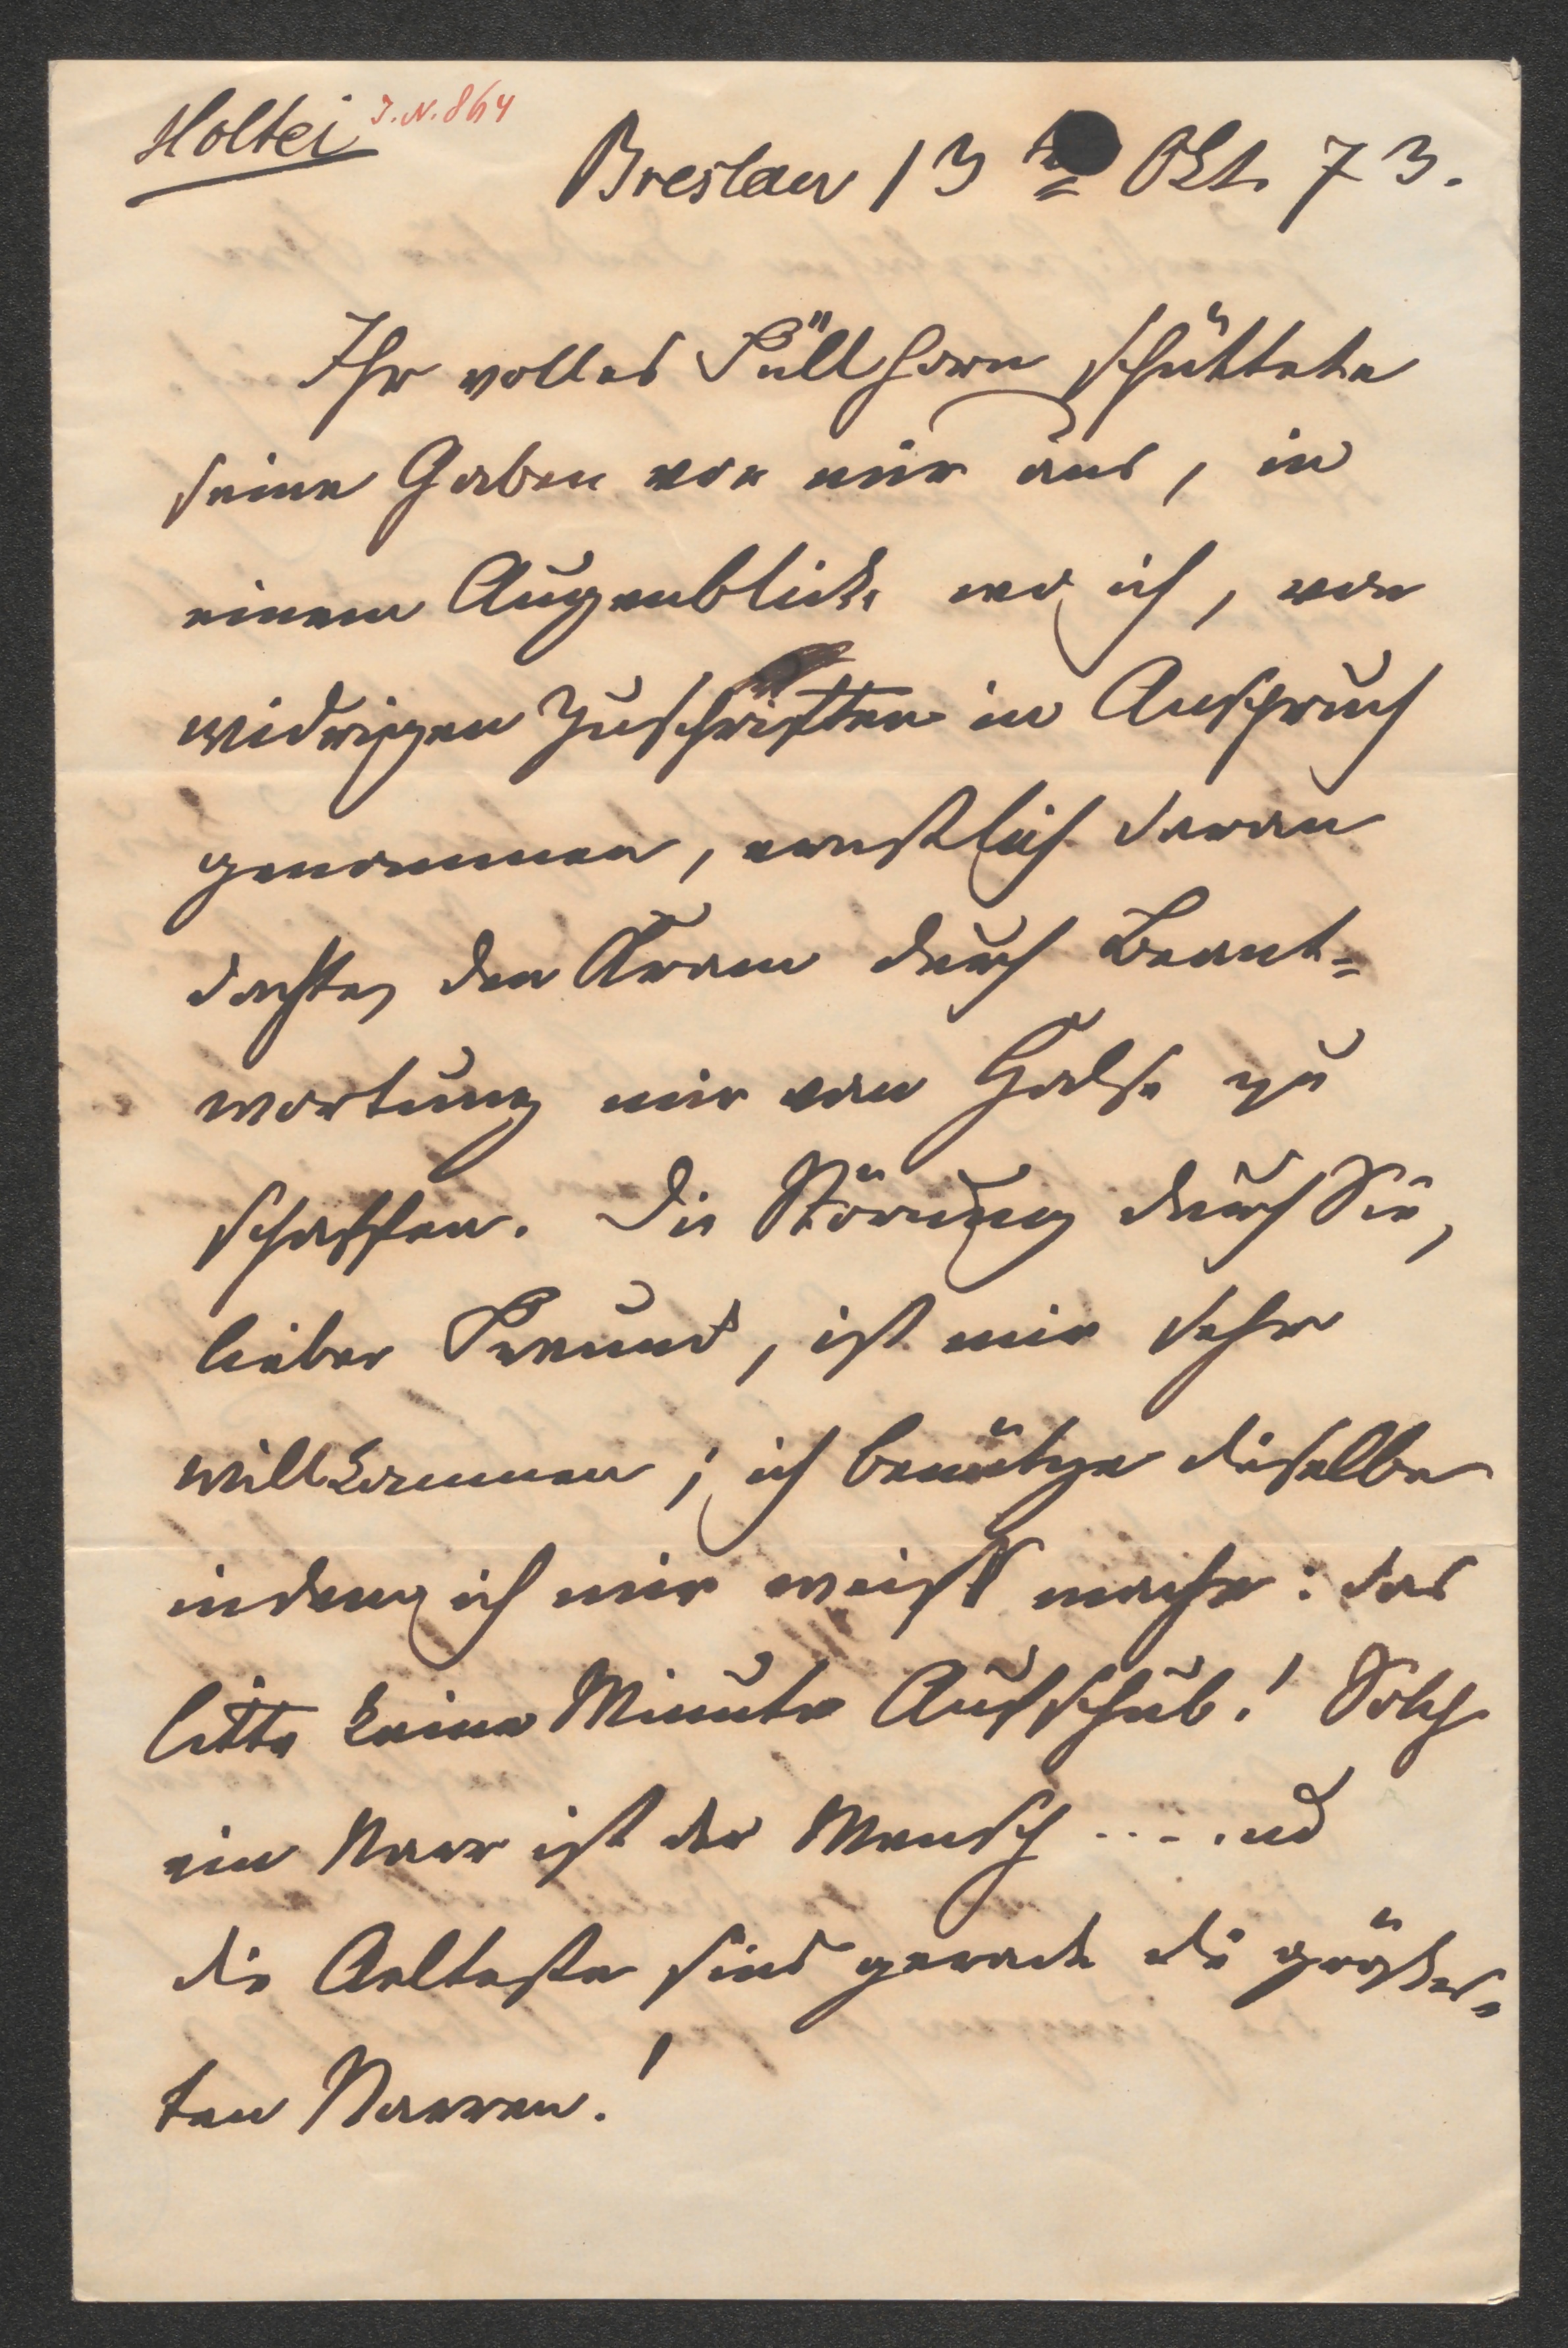 Holtei J.N. 864
Breslau 13 Okt. 73.
Ihr volles Füllhorn schüttete
seine Gaben vor mir aus, in
einem Augenblicke wo ich, von
widrigen Zuschriften in Anspruch
genommen, ernstlich daran
dachte, den Kram durch Beant=
wortung mir vom Halse zu
schaffen. Die Störung durch Sie,
lieber Freund, ist mir sehr
willkommen; ich benütze dieselbe
indem ich mir weiß mache: das
litte keine Minute Aufschub! Solch
ein Narr ist der Mensch .... ud
die Aelteste sind gerade die größes=
ten Narren!